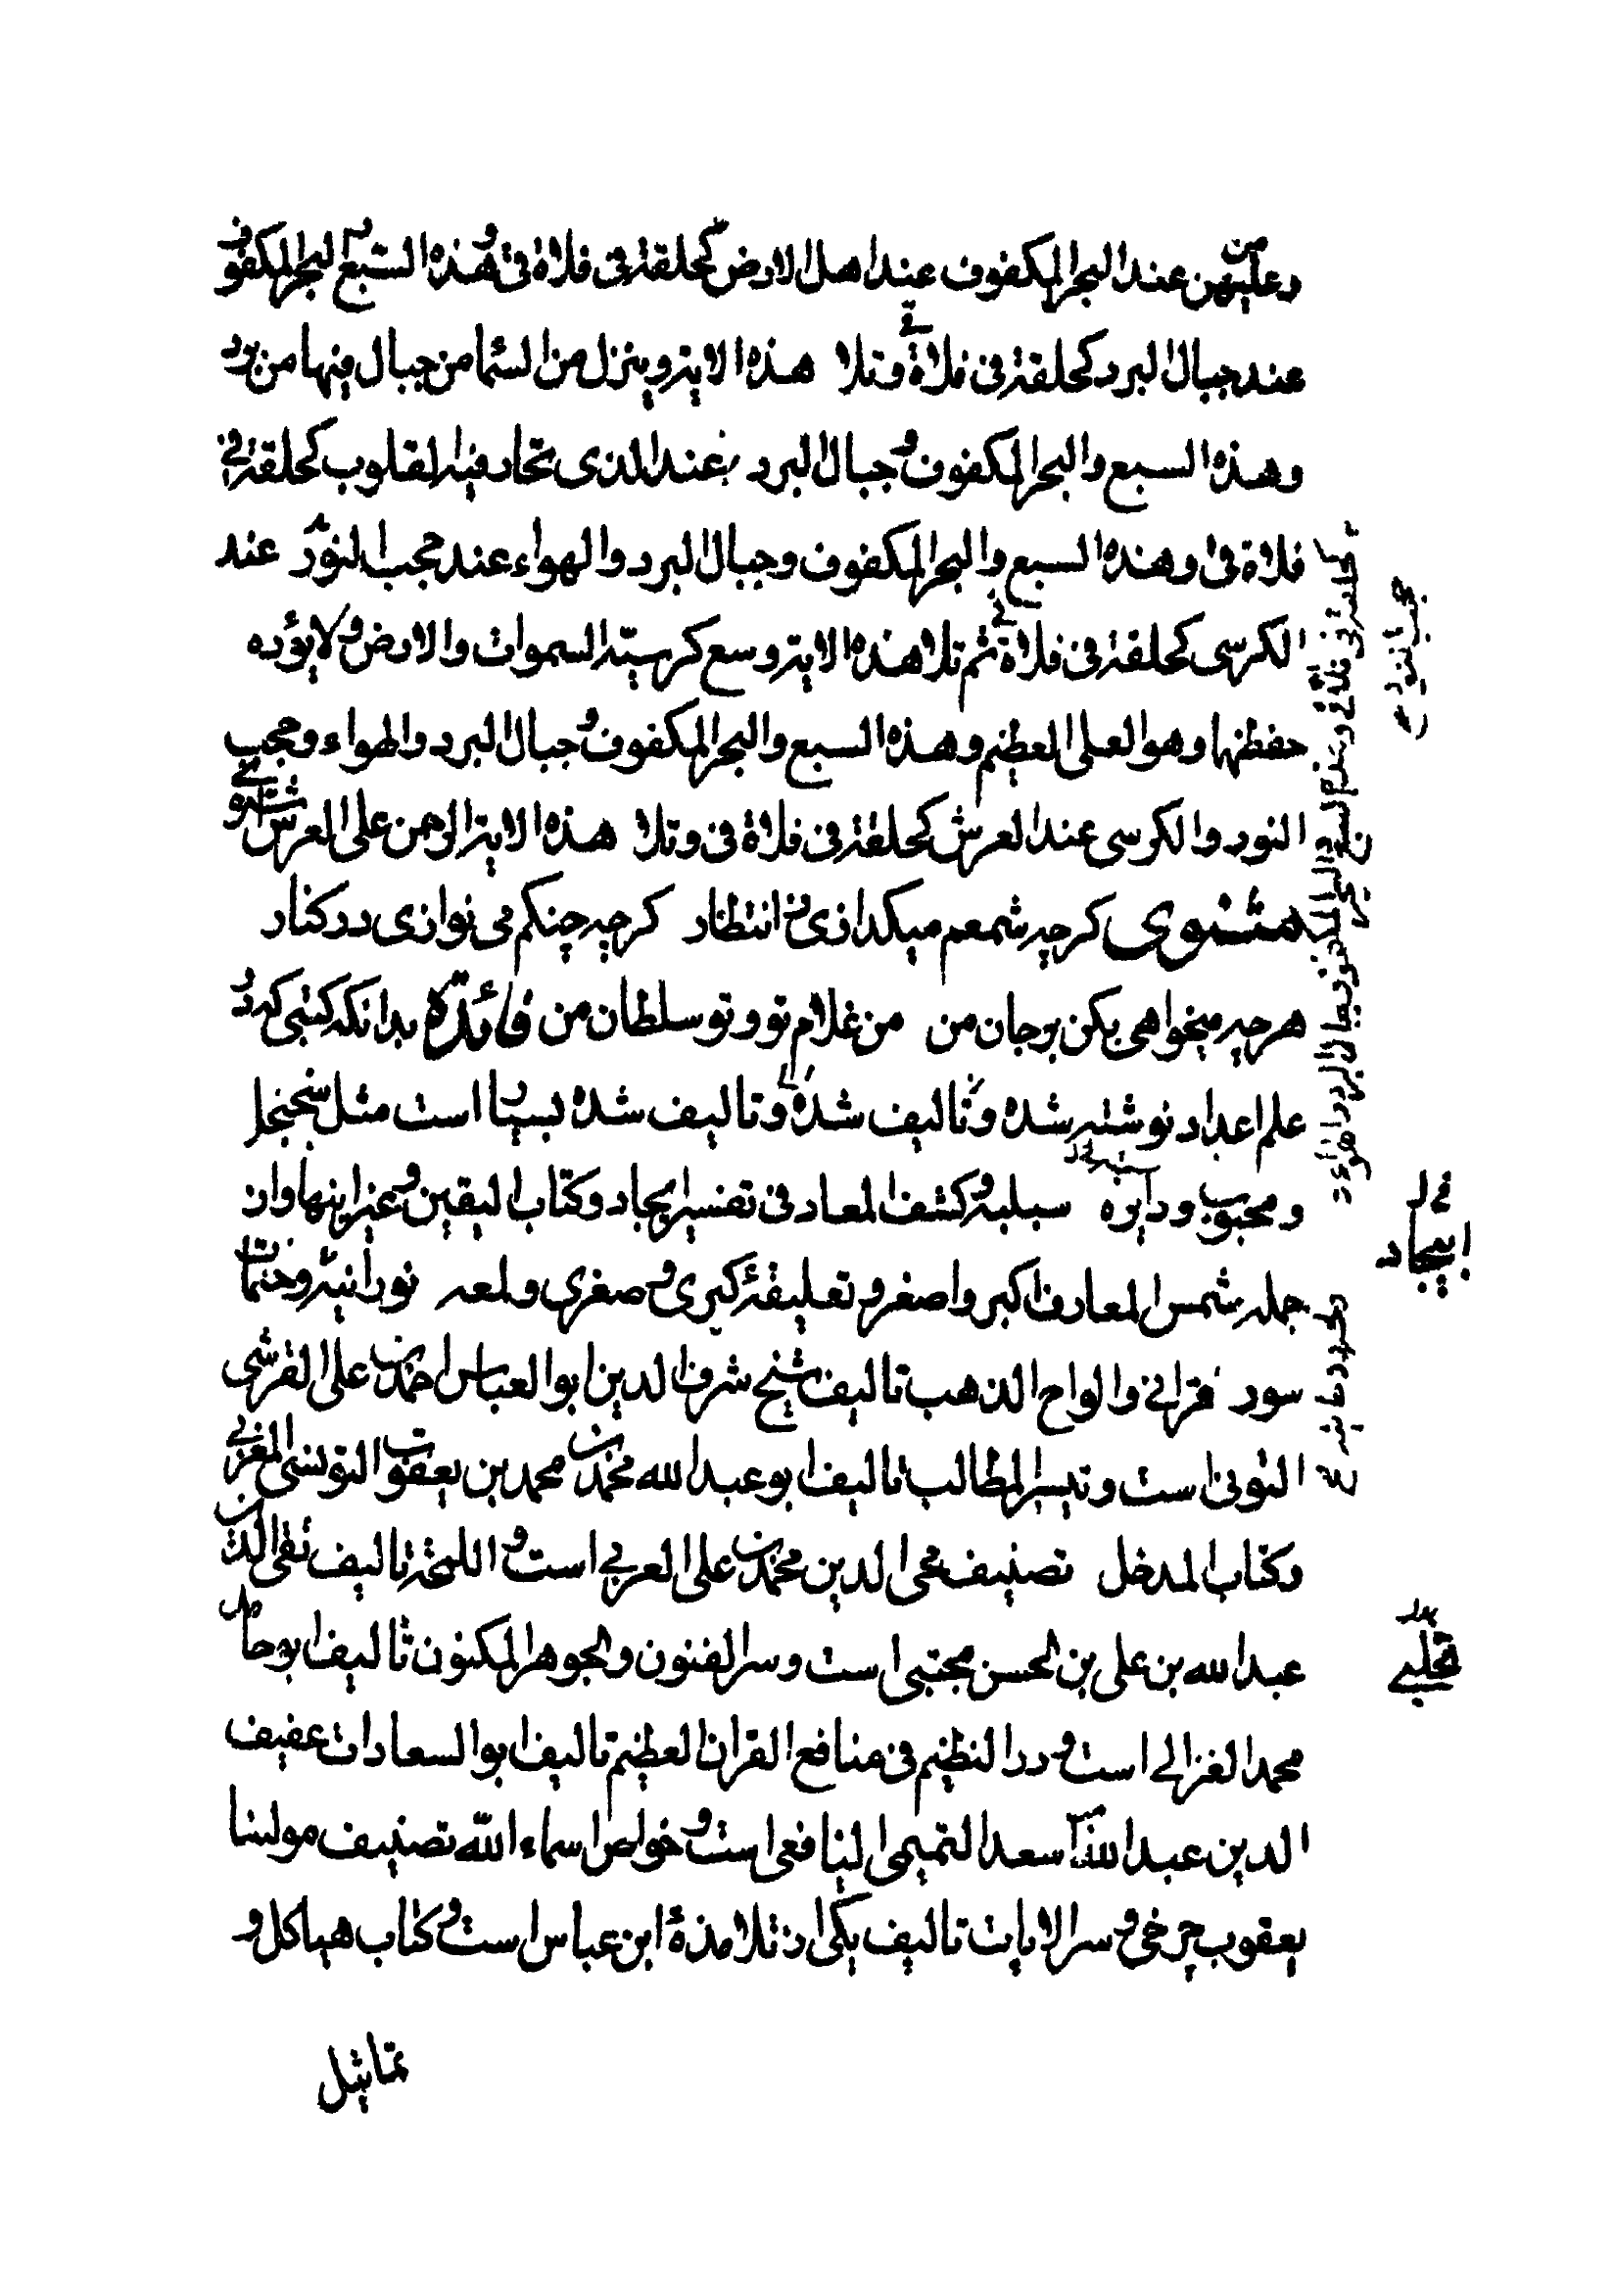 و من علیهن عند البحر المکفوف عند اهل الارض کحلقة فی فلاة فی و هذه السبع و البحر المکفوف
عند جبال البرد کحلقة فی فلاة فی و تلا هذه الایة و ینزل من السما من جبال فیها من برد
و هذه السبع و البحر المکفوف و جبال البرد عند الذی تحار فیه القلوب کحلقة فی
فلاة فی و هذه السبع و البحر المکفوف و جبال البرد و الهواء عند حجب النور عند
الکرسی کحلقة فی فلاة فی ثم تلا هذه الایة وسع کرسیه السموات و الارض و لا یؤده
حفظهما و هو العلی العظیم و هذه السبع و البحر المکفوف و جبال البرد و الهواء و حجب
النور و الکرسی عند العرش کحلقة فی فلاة فی و تلا هذه الایة الرحمن علی العرش استوی
مثنوی کرچه شمعم میکدازی ز انتظار کرچه چنکم می نوازی در کنار
هرچه میخواهی بکن بر جان من من غلام تو و تو سلطان من فائده بدانکه کتبی که در
علم اعداد نوشته شده و تالیف شده و تالیف شده بسیار است مثل سجنجل
و محبوب و دایره سبلبه و کشف المعاد فی تفسیر ایجاد و کتاب الیقین و غیر اینها و از ان
جمله شمس المعارف اکبر و اصغر و تعلیقهٔ کبری و صغری و لمعه نورانیه و ختمات
سور قرانی و الواح الذهب تالیف شیخ شرف الدین ابو العباس احمد بن علی القرشی
البونی است و تیسیر المطالب تالیف ابو عبد الله محمد بن محمد بن یعقوب التونسی المغربی
و کتاب المدخل تصنیف محی الدین محمد بن علی العربی است و اللمحة تالیف تقی الدین
عبد الله بن علی بن الحسن مجتبی است و سر الفنون و الجوهر المکنون تالیف ابو حامد
محمد الغزالی است و در النظیم فی منافع القران العظیم تالیف ابو السعادات عفیف
الدین عبد الله بن اسعد التمیمی الیافعی است و خواص اسماء الله تصنیف مولینا
یعقوب چرخی و سر الایات تالیف یکی از تلامذهٔ ابن عباس است و کتاب هیاکل و
تماثیل
ایجاد